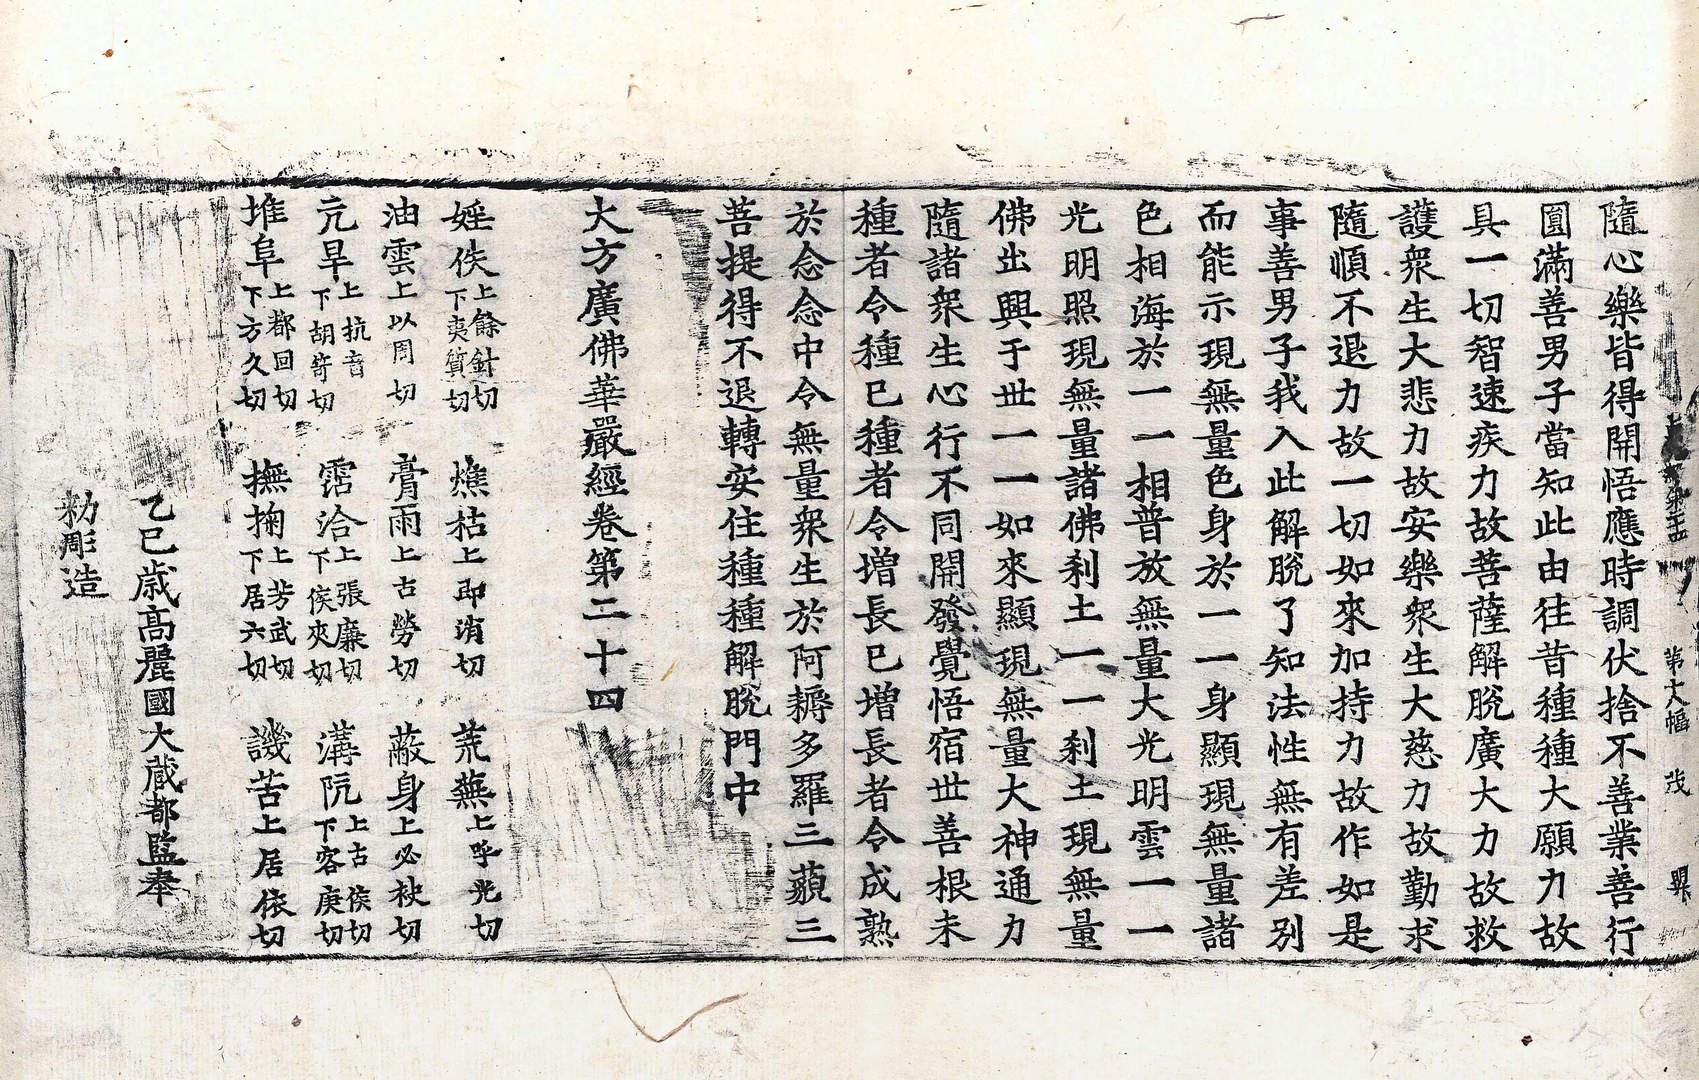 第十六幅 茂
隨心樂皆得開悟應時調伏捨不善業善行
圓滿善男子當知此由往昔種種大願力故
具一切智速疾力故菩薩解脫廣大力故救
護衆生大悲力故安樂衆生大慈力故勤求
隨順不退力故一切如來加持力故作如是
事善男子我入此解脫了知法性無有差別
而能示現無量色身於一一身顯現無量諸
色相海於一一相普放無量大光明雲一一
光明照現無量諸佛刹土一一刹土現無量
佛出興于世一一如來顯現無量大神通力
隨諸衆生心行不同開發覺悟宿世善根未
種者令種已種者令增長已增長者令成熟
於念念中令無量衆生於阿耨多羅三藐三
菩提得不退轉安住種種解脫門中
大方廣佛華嚴經卷第二十四
婬佚上餘針切下夷質切 燋枯上即消切 荒蕪上呼光切
油雲上以周切 膏雨上古勞切 蔽身上必袂切
亢旱上抗音下胡笴切 霑洽上張廉切下侯夾切 溝阬上古侯切下客庚切
堆阜上都回切下方久切 撫掬上芳武切下居六切 譏苦上居依切
乙巳歲高麗國大藏都監奉
勑彫造